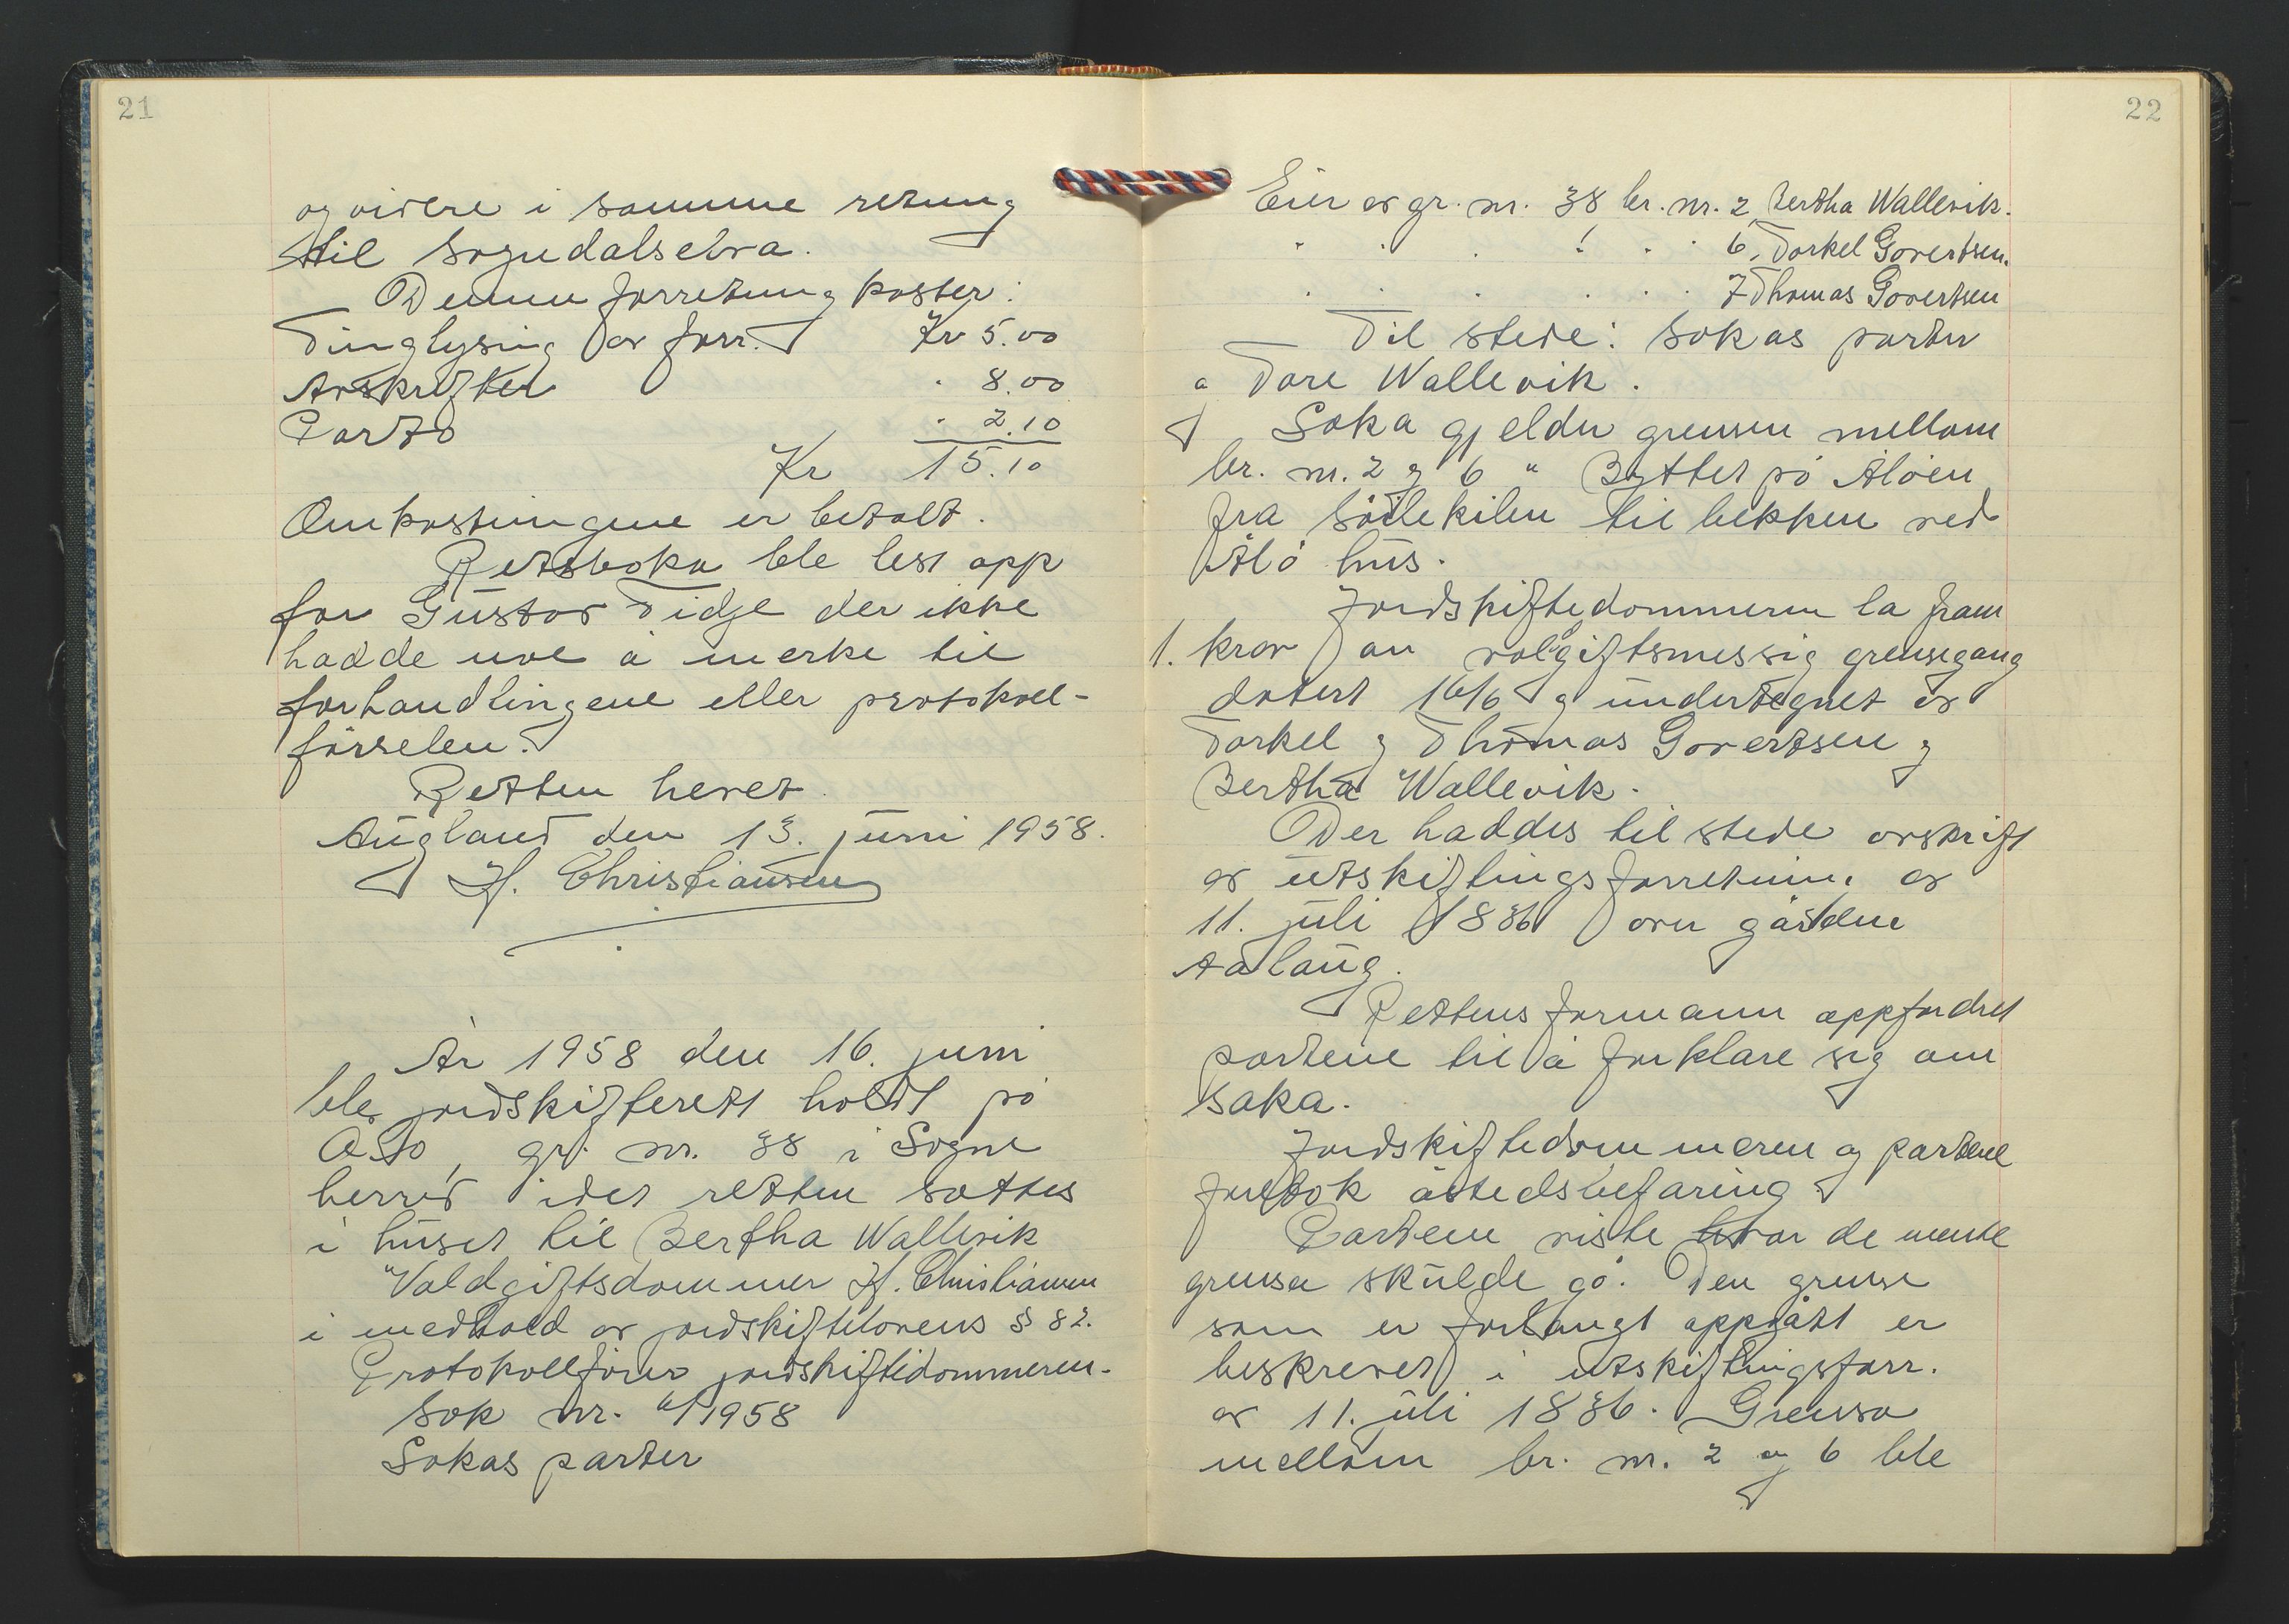 21
og videre i samme retning
til Sogndalselva.
Denne forretning koster:
Tinglysing av forr. Kr 5.00
Avskrifter " 8.00
Porto " 2.10
Kr 15.10
Omkostningene er betalt.
Rettsboka ble lest opp
for Gustav Tidje der ikke
hadde noe å merke til
forhandlingene eller protokoll-
førselen.
Retten hevet.
Augland den 13. juni 1958.
H. Christiansen
År 1958 den 16. juni
ble jordskifterett holdt på
Alø, gr. nr. 38 i Søgne
herred idet retten sattes
i huset til Bertha Wallevik
Voldgiftsdommer H. Christiansen
i medhold av jordskiftelovens § 82.
Protokollfører jordskiftedommeren.
Sak nr. 6/1958
Sakas parter
22
Eier av gr. nr. 38 br. nr. 2, Bertha Wallevik.
" " " " " 6, Torkel Govertsen.
" " " " " 7 Thomas Govertsen
Til stede: Sakas parter
og Tore Wallevik.
Saka gjelder grensen mellom
br. nr. 2 og 6 " Byttet på Åløen
fra Södlekilen til bekken ved
Ålø hus.
Jordskiftedommeren la fram
1. krav om voldgiftsmessig grensegang
datert 16/6 og undertegnet av
Torkel og Thomas Govertsen og
Bertha Wallevik.
Der haddes til stede avskrift
av utskiftingsforretning av
11. juli 1836 over gården
Aalaug.
Rettens formann oppfordret
partene til å forklare seg om
saka.
Jordskiftedommeren og partene
foretok åstedsbefaring.
Partene viste hvor de mente
grensa skulde gå. Den grense
som er forlangt oppgått er
beskrevet i utskiftingsforr.
av 11. juli 1836. Grensa
mellom br. nr. 2 og 6 ble